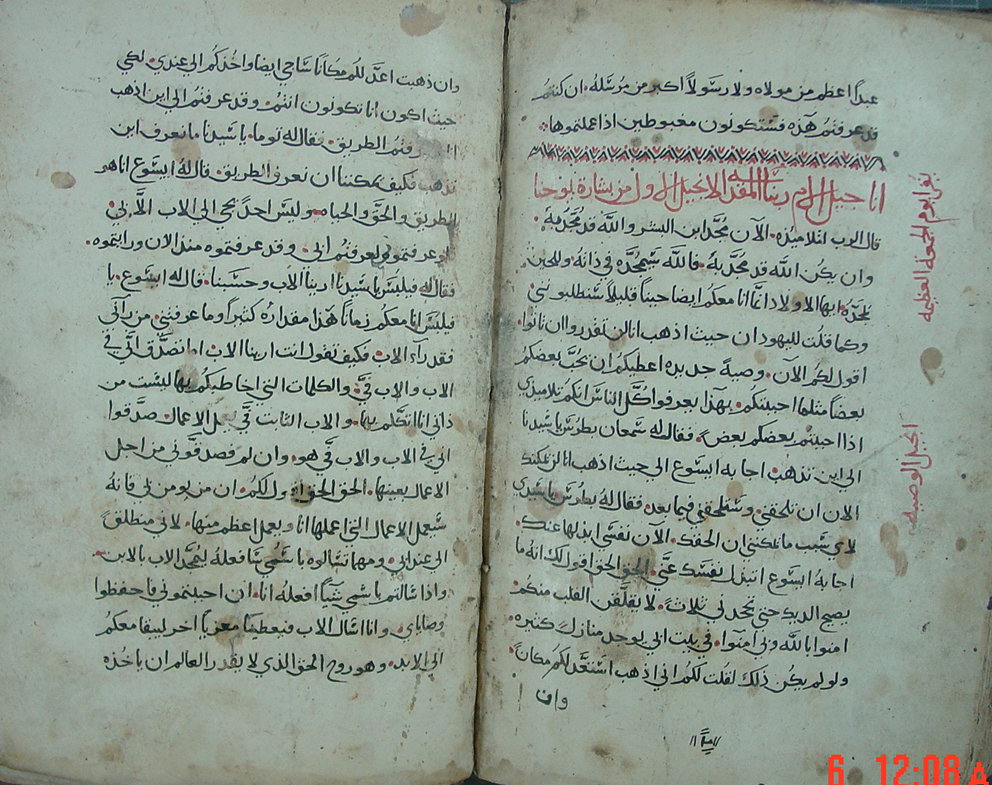 عبدًا اعظم من مولاه ولا رسولاً اكبر من مرسله. ان كنتم
قد عرفتم هذه فستكونون مغبوطين اذا عملتموها
اناجيل الالام ربنا المقدسه الانجيل الاول من بشارة يوحنا
يقرا يوم الجمعة العظيمه
انجيل الوصيه
قال الرب لتلاميذه. الآن مُجّد ابن البشر والله قد مُجّد به
وان يكُن الله قد مُجّد به. فالله سيُمجّده في ذاته. وللحين
يمجّده. ايها الاولاد انا معكم ايضا حينًا قليلاً ستطلبونني
وكما قلت لليهود ان حيث اذهب انا لن تقدروا ان تاتوا.
اقول لكم الآن. وصيةً جديده اعطيكم ان يحبّ بعضكم
بعضًا مثلما احببتكم. بهذا يعرفوا كُلّ الناس انكم تلاميذي
اذا احببتم بعضكم بعض. فقال له سمعان بطرس يا سيدنا
الى اين تذهب. اجابه ايسوع الى حيث اذهب انا لن يمكنك
الان ان تلحقني. وستلحقني فيما بعد. فقال له بطرس يا سيدي
لاي سبب ما يمكنني ان الحقك. الآن نفسي ابذلها عنك
اجابهُ ايسوع اتبذل نفسك عنّي. الحق الحق اقول لك انه ما
يصيح الديك حتى تجحدني ثلاثه. لا يقلقن القلب منكم.
امنوا بالله وبي امنوا. في بيت ابي يوجد منازل كثيره.
ولو لم يكُن ذلك لقلت لكم اني اذهب استعدّ لكم مكانًا.
وان
وان ذهبت اعدّ لكُم مكانًا ساجي ايضا واخذكم الي عندي. لكي
حيث اكون انا تكونون انتم. وقد عرفتم الى اين اذهب
وعرفتم الطريق. فقال له توما. يا سيدنا ما نعرف اين
تذهب فكيف يمكننا ان نعرف الطريق. قال لهُ ايسوع انا هو
الطريق والحقّ والحياه. وليس احدٌ يجي الى الاب الاّ بي.
لو عرفتموني لعرفتم ابي. وقد عرفتموه منذ الان ورايتموه.
فقال له فيلبس يا سيدنا ارينا الاب وحسبنا. قال له ايسوع. يا
فيلبس انا معكم زمانًا هذا مقداره كثيرًا وما عرفتني. من رآني
فقد رآء الاب. فكيف تقول انت ارينا الاب. اما تصدّق انّي في
الاب والاب فيّ. والكلمات التي اخاطبكم بها ليست من
ذاتي انا اتكلم بها. والاب الثابت فيّ يعمل الاعمال. صدّقوا
اني في الاب والاب فيّ هو. وان لم فصدقوني من اجل
الاعمال بعينها. الحق الحق اقول لكم. ان من يومن بي فانهُ
سيعمل الاعمال التي اعملها انا ويعمل اعظم منها. لاني منطلقٌ
الى عند ابي. ومهما تسالوه باسمي سافعلهُ ليتمجّد الاب بالابن.
واذا سالتم باسمي شيًا افعلهُ انا. ان احببتموني فاحفظوا
وصاياي. وانا اسال الاب فيعطيكم معزيًا آخر ليبقا معكم
الى الابد. وهو روح الحق الذي لا يقدر العالم ان ياخذه
6 12:08 A